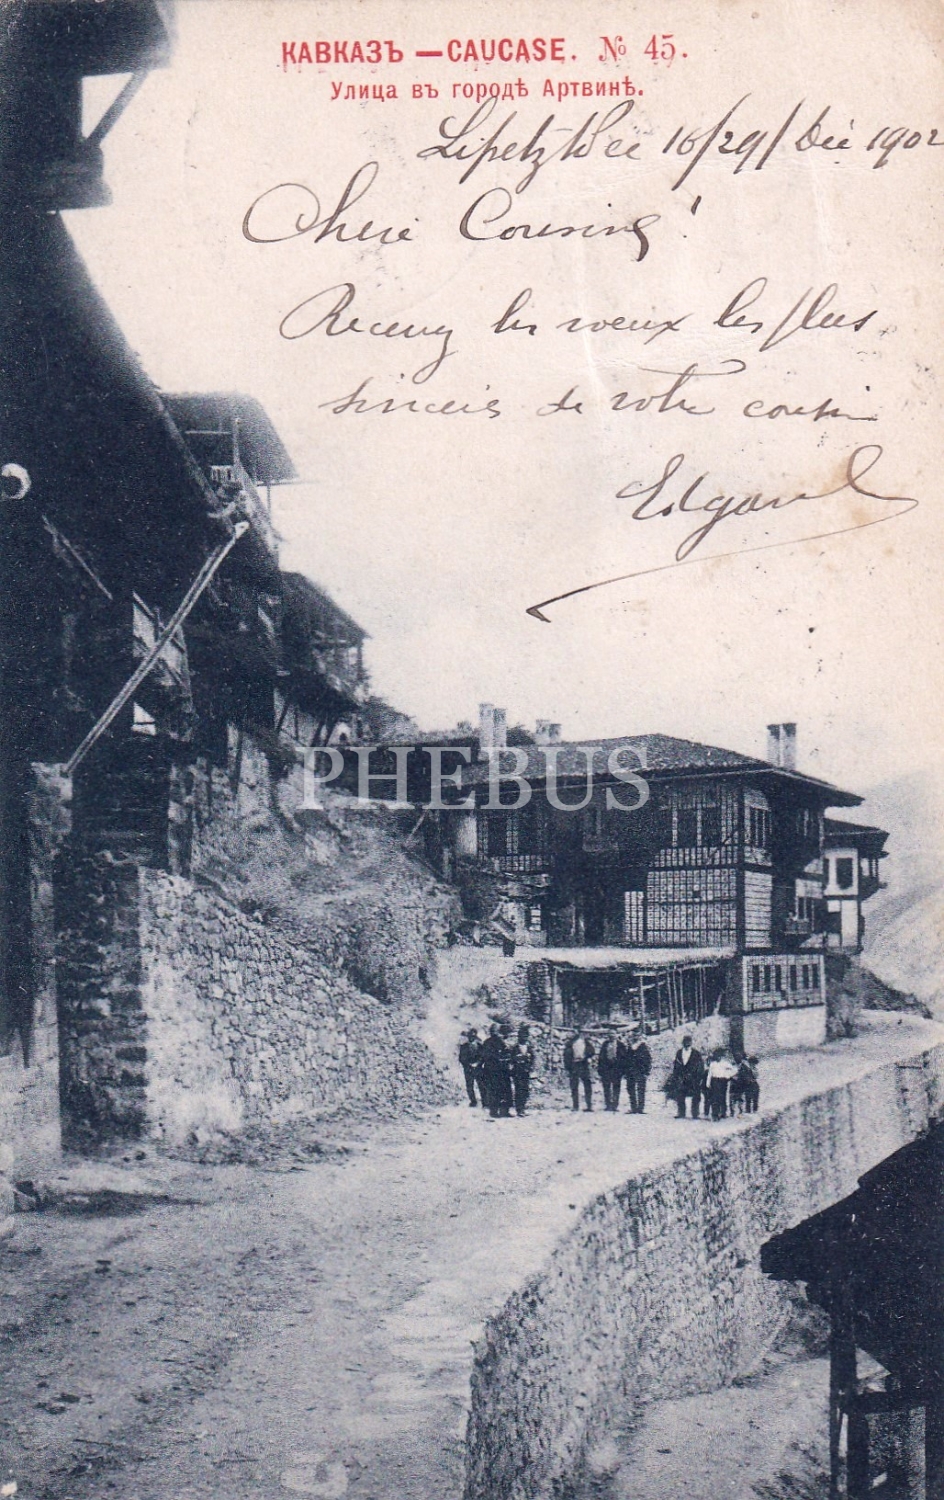 КАВКАЗЪ — CAUCASE. № 45.
Улица въ городѣ Артвинѣ.
16/29/ Déc 1902
Chère Cousine!
Recevez les voeux les plus
sincères de votre cousin
Edgard
PHEBUS